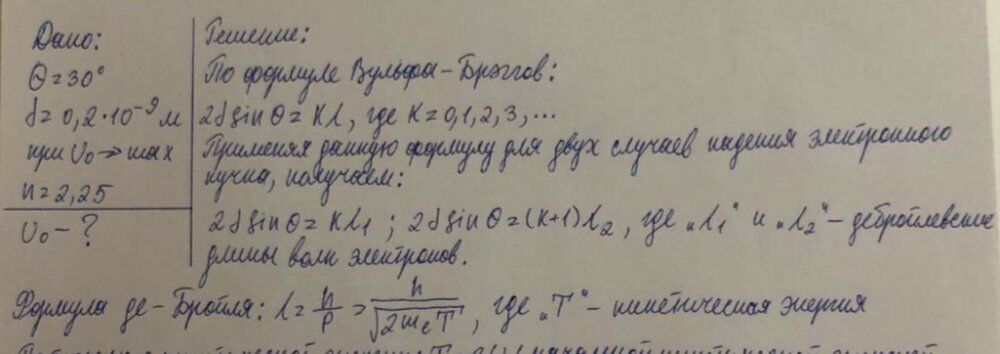 Дано:
Θ=30°
d=0,2·10⁻⁹ м
при U₀→max
n=2,25
U₀-?
Решение:
По формуле Вульфа-Брэггов:
2d sin Θ = Kλ, где K=0,1,2,3,...
Применяя данную формулу для двух случаев падения электронного
пучка, получаем:
2d sin Θ = Kλ₁ ; 2d sin Θ = (K+1)λ₂, где „λ₁" и „λ₂"- дебройлевские
длины волн электронов.
Формула де-Бройля: λ = h/p = h/√(2mₑT), где „T"- кинетическая энергия